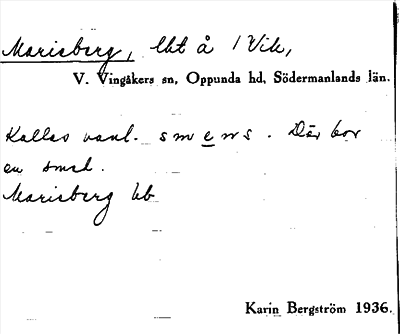 Marieberg, lht å 1 Vik,
V. Vingåkers sn, Oppunda hd, Södermanlands län.
Kallas vanl. smens. Där bor
en smed.
Marieberg hb
Karin Bergström 1936.